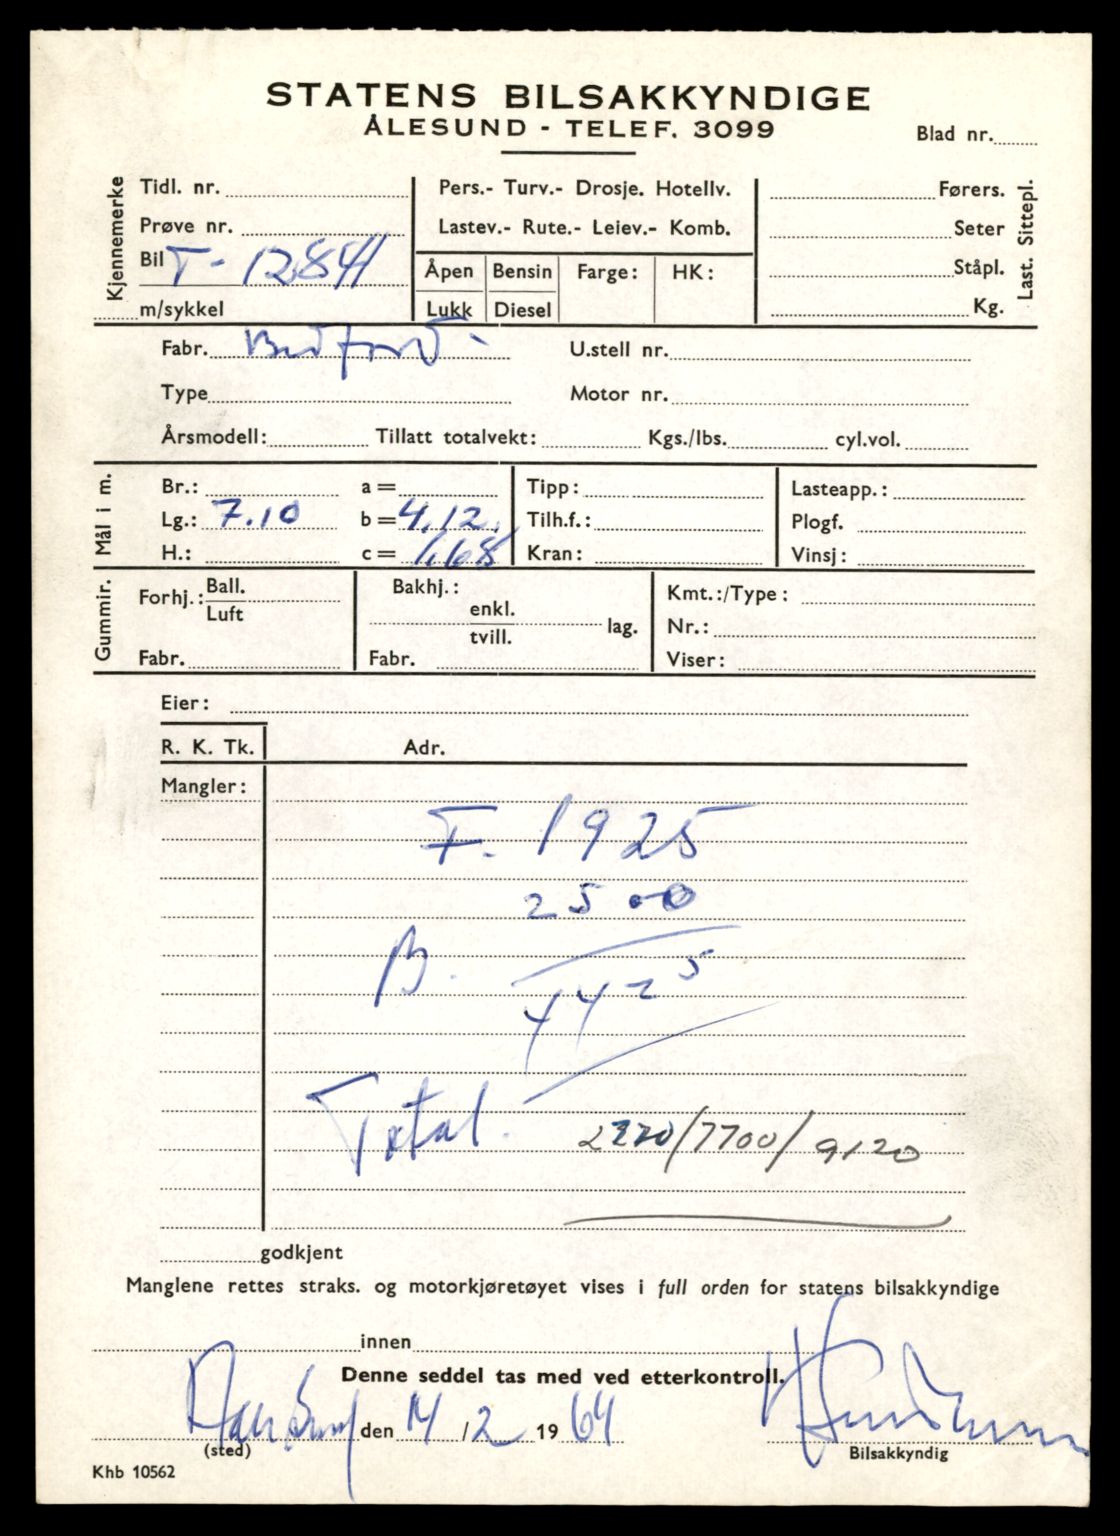 STATENS BILSAKKYNDIGE
ÅLESUND - TELEF. 3099
Blad nr.
Kjennemerke
Tidl. nr.
Prøve nr.
Bil T-12841
m/sykkel
Pers.- Turv.- Drosje. Hotellv.
Lastev.- Rute.- Leiev.- Komb.
Åpen Bensin Farge: HK:
Lukk Diesel
Førers.
Seter
Ståpl.
Kg.
Last. Sittepl.
Fabr. Bedford
U.stell nr.
Type
Motor nr.
Årsmodell: Tillatt totalvekt: Kgs./lbs. cyl.vol.
Mål i m.
Br.: a = Tipp: Lasteapp.:
Lg.: 7.10 b = 4.12. Tilh.f.: Plogf.
H.: c = 1.68 Kran: Vinsj:
Gummir.
Forhj.: Ball. Luft
Bakhj.: enkl. tvill. lag.
Kmt.:/Type:
Nr.:
Fabr. Fabr. Viser:
Eier:
R. K. Tk. Adr.
Mangler:
F. 1925
2500
B.
4425
Total. 2220/7700/9120
godkjent
Manglene rettes straks. og motorkjøretøyet vises i full orden for statens bilsakkyndige
innen
Denne seddel tas med ved etterkontroll.
den 14/2 1964
(sted)
Bilsakkyndig
Khb 10562